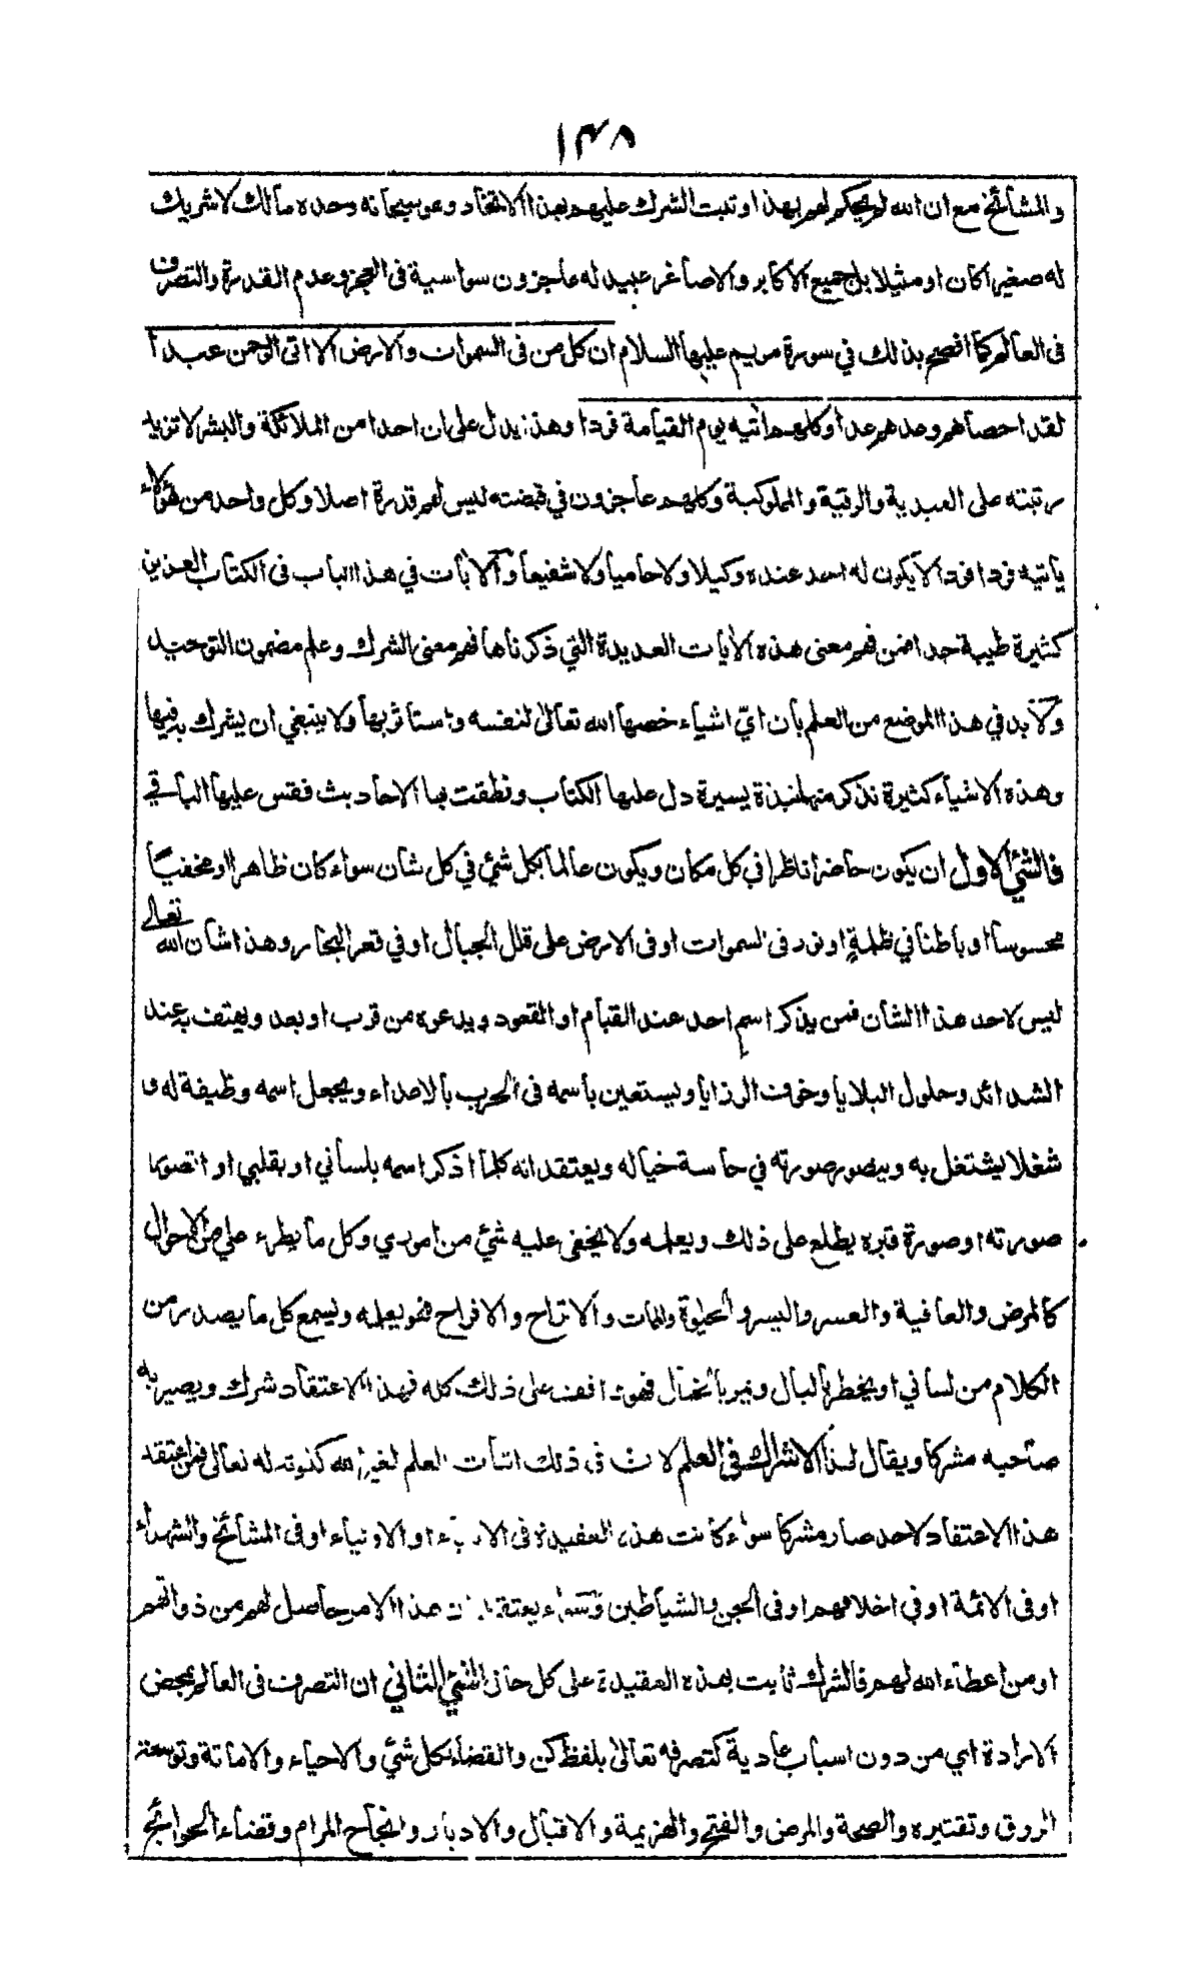 ١٣٨
والمشائخ مع ان الله لم يحكم لهم بهذا وثبت الشرك عليهم بهذا الاتخاذ وهو سبحانه وحده مالك لا شريك
له صغيرا كان او مثيلا بل جميع الأكابر والاصاغر عبيد له عاجزون سواسية فى العجز وعدم القدرة والتصرف
فى العالم كما افصح بذلك في سورة مريم عليها السلام ان كل من فى السموات والارض الا اتى الرحمن عبدا
لقد احصاهم وعدهم عدا وكلهم اتيه يوم القيامة فردا وهذا يدل على ان احدا من الملائكة والبشر لا تزيد
رتبته على العبدية والرقية والمملوكية وكلهم عاجزون في قبضته ليس لهم قدرة اصلا وكل واحد من هؤلاء
ياتيه فردا فردا لا يكون له احد عنده وكيلا ولا حاميا ولا شفيعا والآيات في هذا الباب فى الكتاب العزيز
كثيرة طيبة جدا فمن فهم معنى هذه الأيات العديدة التي ذكرناها فهم معنى الشرك وعلم مضمون التوحيد
ولا بد في هذا الموضع من العلم بان ايّ اشياء خصها الله تعالى لنفسه واستاثر بها ولا ينبغي ان يشرك به فيها
وهذه الاشياء كثيرة نذكر منها نبذة يسيرة دل عليها الكتاب ونطقت بها الاحاديث فقس عليها الباقي
فالشئ الاول ان يكون حاضرا ناظرا في كل مكان ويكون عالما بكل شئ في كل شان سواء كان ظاهرا او مخفيا
محسوسا او باطنا في ظلمةٍ او نور فى السموات او فى الارض على قلل الجبال او في قعر البحار وهذا شان الله تعالى
ليس لاحد هذا الشان فمن يذكر اسم احد عند القيام او القعود ويدعوه من قرب او بعد ويهتف به عند
الشدائد وحلول البلايا وخوف الرزايا ويستعين باسمه فى الحرب بالاعداء ويجعل اسمه وظيفة له و
شغلا يشتغل به ويتصور صورته في حاسة خياله ويعتقد انه كلما اذكر اسمه بلساني او بقلبي او اتصور
صورته او صورة قبره يطلع على ذلك ويعلمه ولا يخفى عليه شئ من اموري وكل ما يطرء علي من الاحوال
كالمرض والعافية والعسر واليسر والحيوة والممات والاتراح والافراح فهو يعلمه ويسمع كل ما يصدر من
الكلام من لساني او يخطر بالبال ويمر بالخيال فهو واقف على ذلك كله فهذا الاعتقاد شرك ويصير به
صاحبه مشركا ويقال لهذا الاشراك فى العلم لان فى ذلك اثبات العلم لغير الله كثبوته له تعالى فمن اعتقد
هذا الاعتقاد لاحد صار مشركا سواء كانت هذه العقيدة فى الانبياء او الاولياء او فى المشائخ والشهداء
او فى الائمة او في اخلافهم او فى الجن والشياطين وسواء يعتقد ان هذا الامر حاصل لهم من ذواتهم
او من اعطاء الله لهم فالشرك ثابت بهذه العقيدة على كل حال الشئ الثاني ان التصرف فى العالم بمحض
الارادة اي من دون اسباب عادية كتصرفه تعالى بلفظ كن والقضاء بكل شئ والاحياء والاماتة وتوسعة
الرزق وتقتيره والصحة والمرض والفتح والهزيمة والاقبال والادبار وانجاح المرام وقضاء الحوائج